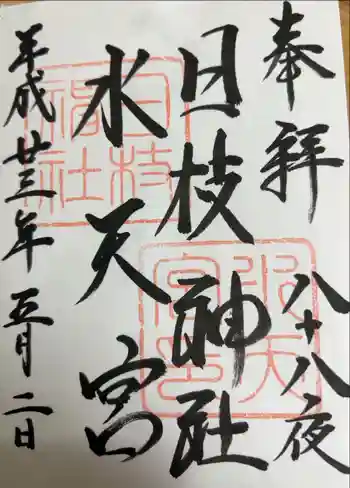 奉拝 八十八夜
日枝神社
水天宮
平成廿三年五月二日
日枝神社
水天宮印